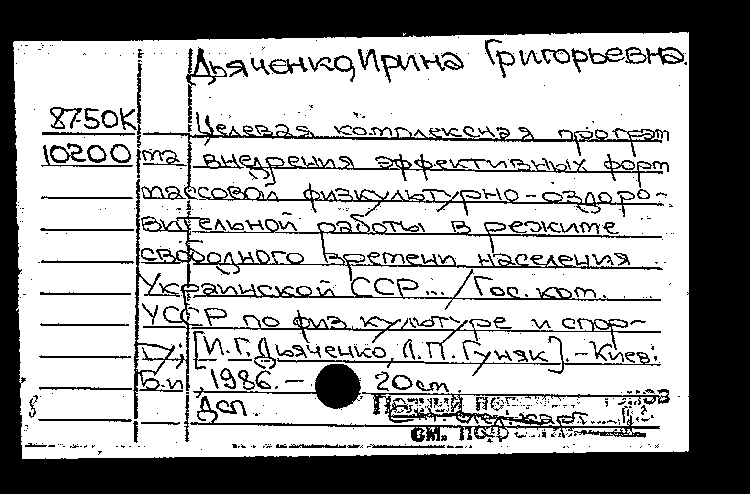 Дьяченко, Ирина Григорьевна.
8750К Целевая комплексная програм
10200 ма внедрения эффективных форм
массовой физкультурно-оздоро-
вительной работы в режиме
свободного времени населения
Украинской ССР... / Гос. ком.
УССР по физ. культуре и спор-
ту; [И.Г. Дьяченко, Л.П. Гуняк]. - Киев:
Б.и., 1986. - 20 см.
Дсп.
Полный
см.